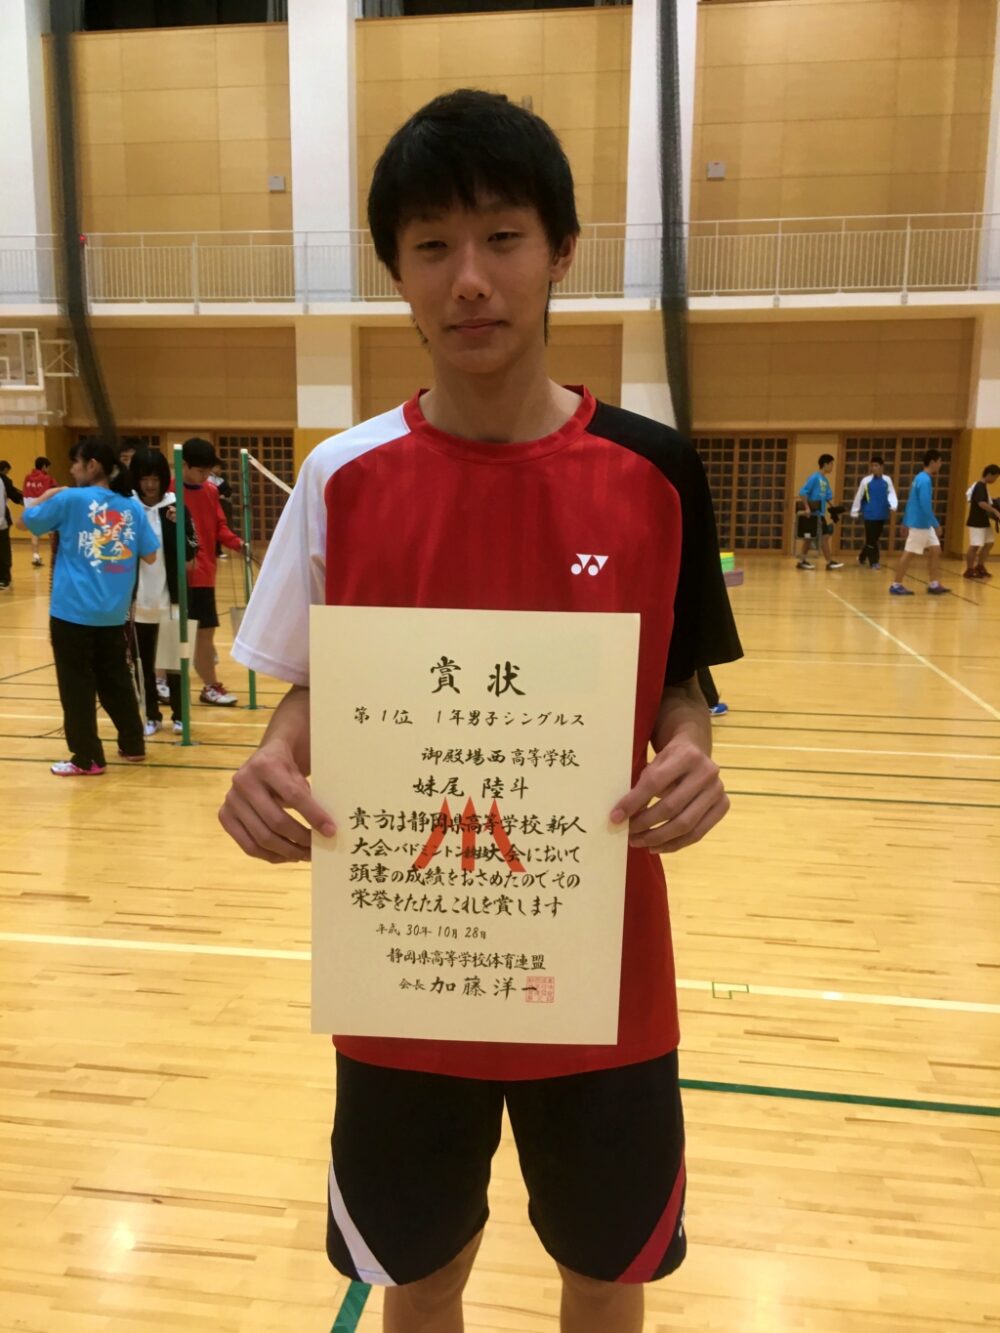 賞状
第1位 1年男子シングルス
御殿場西高等学校
妹尾 陸斗
貴方は静岡県高等学校新人
大会バドミントン競技大会において
頭書の成績をおさめたのでその
栄誉をたたえこれを賞します
平成30年10月28日
静岡県高等学校体育連盟
会長 加藤洋一